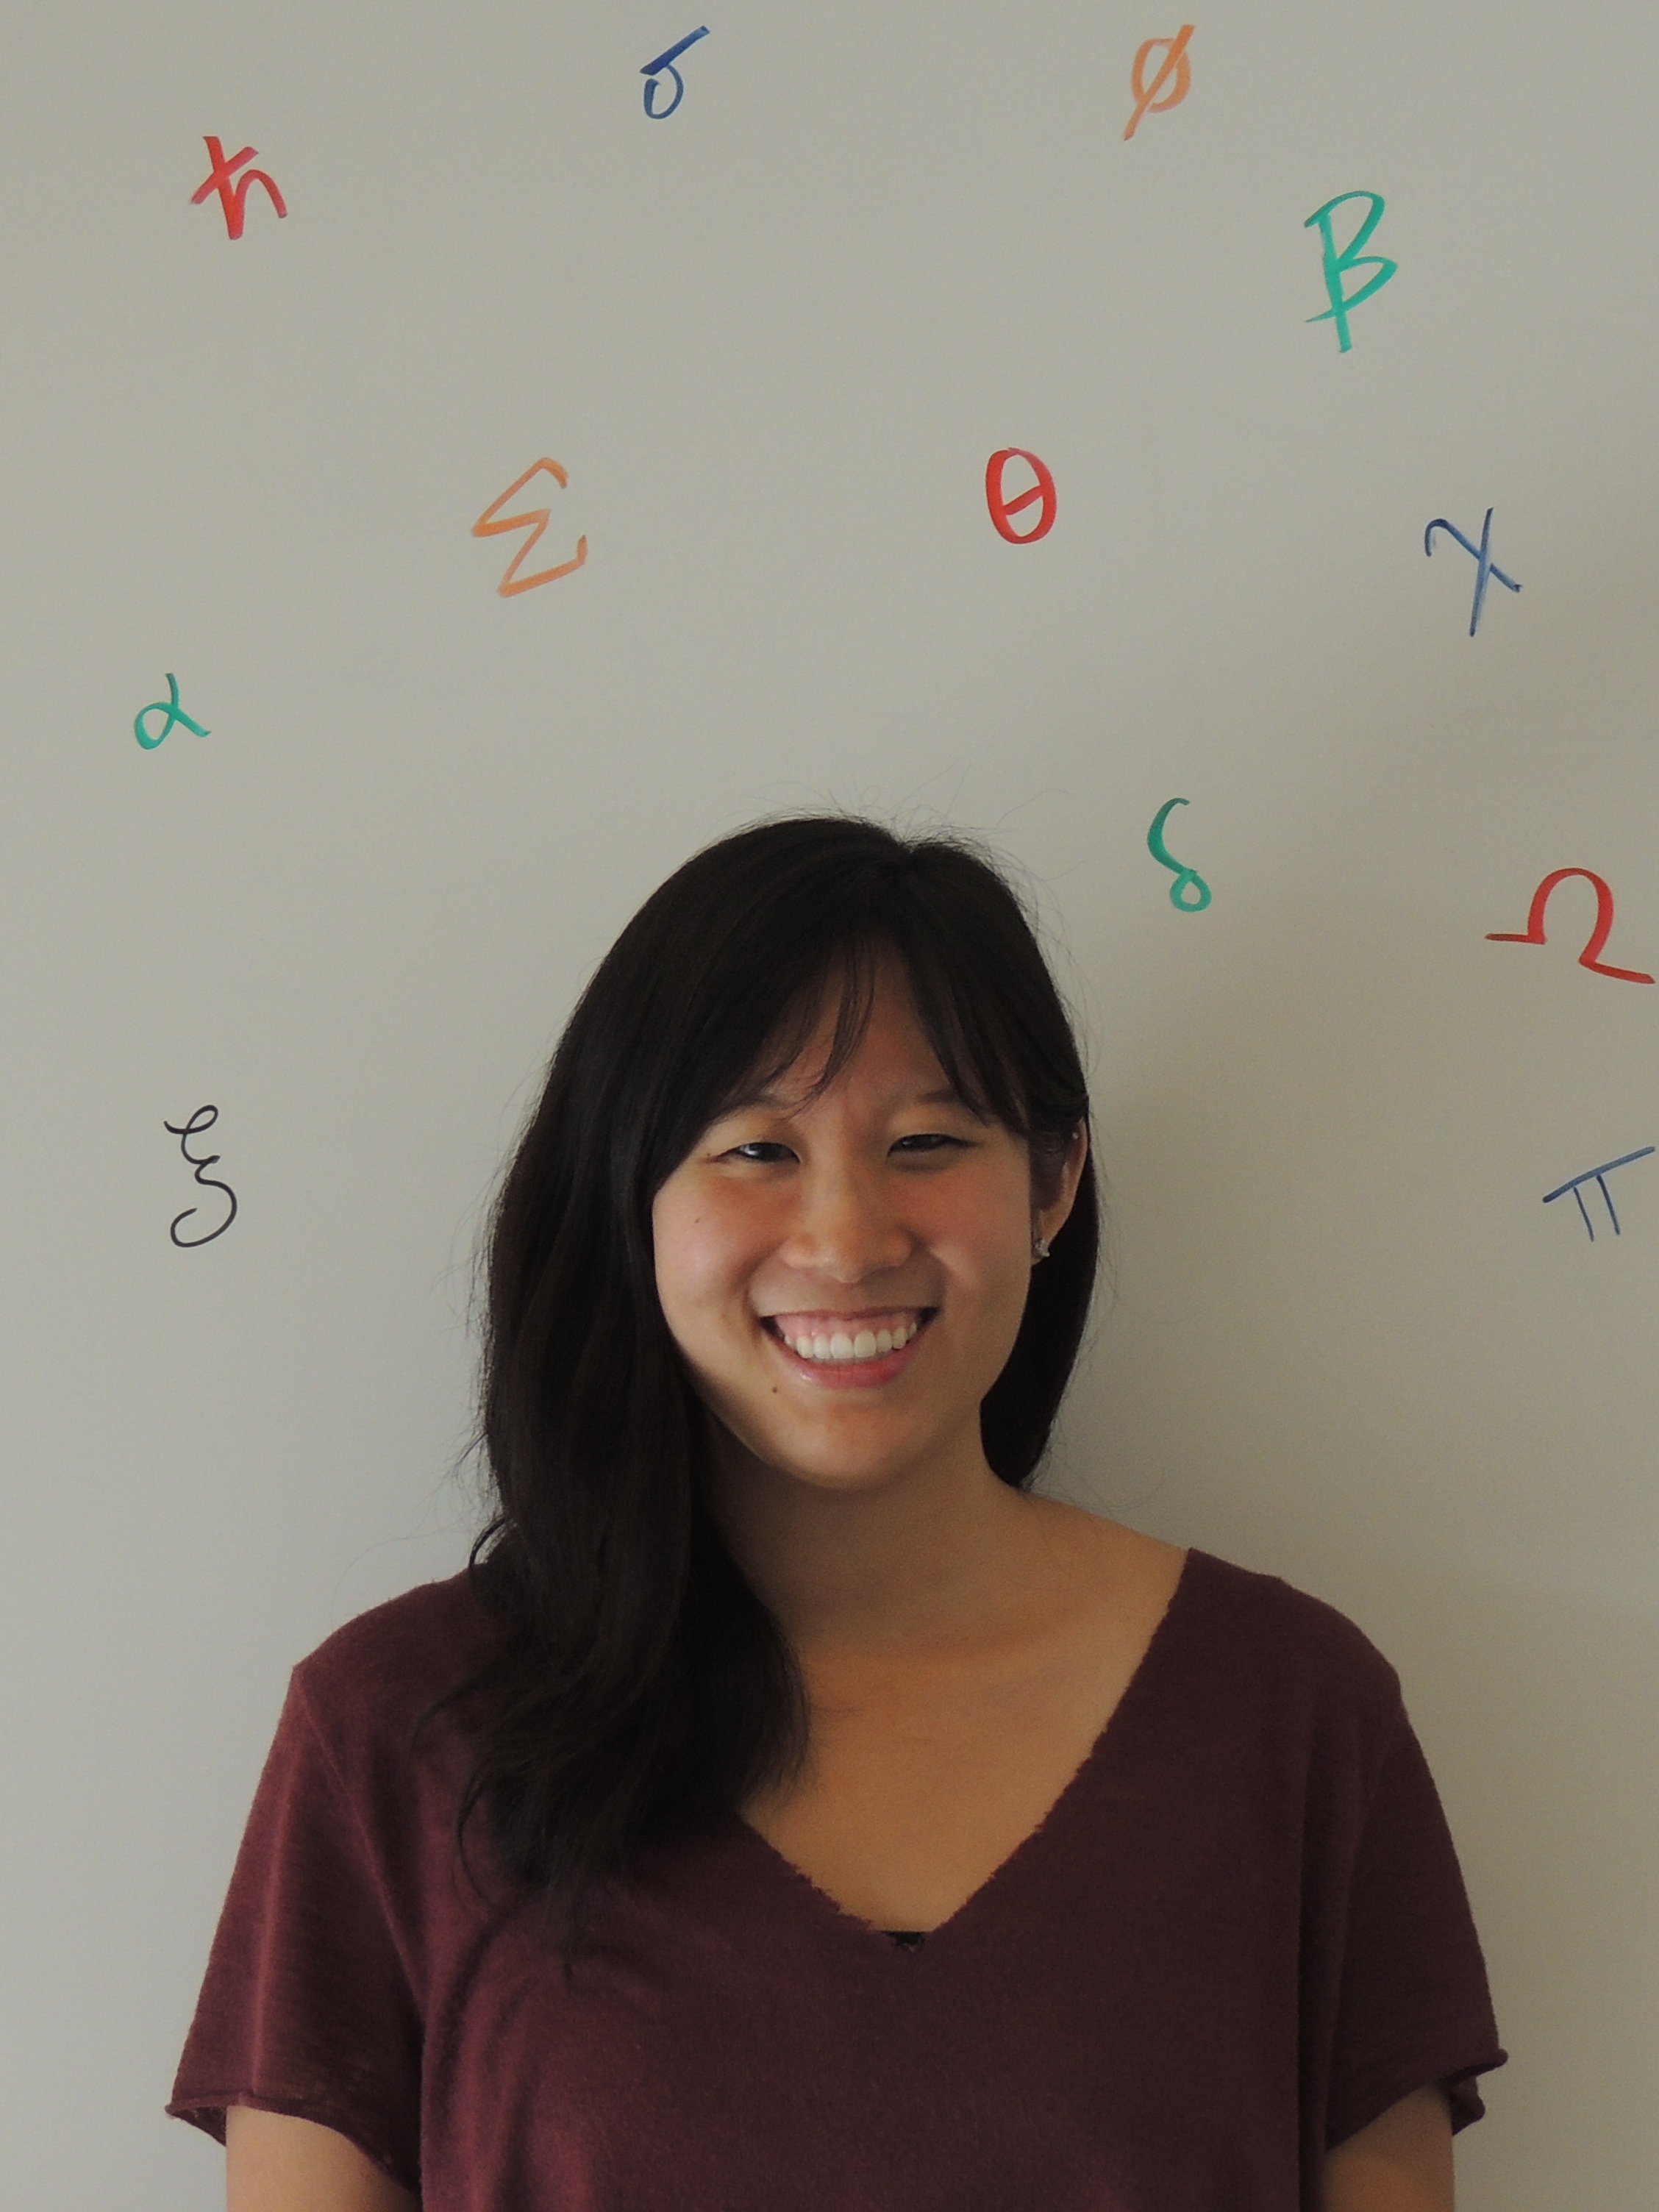 σ
ϕ
ħ
β
Σ
θ
χ
α
δ
Ω
ξ
π